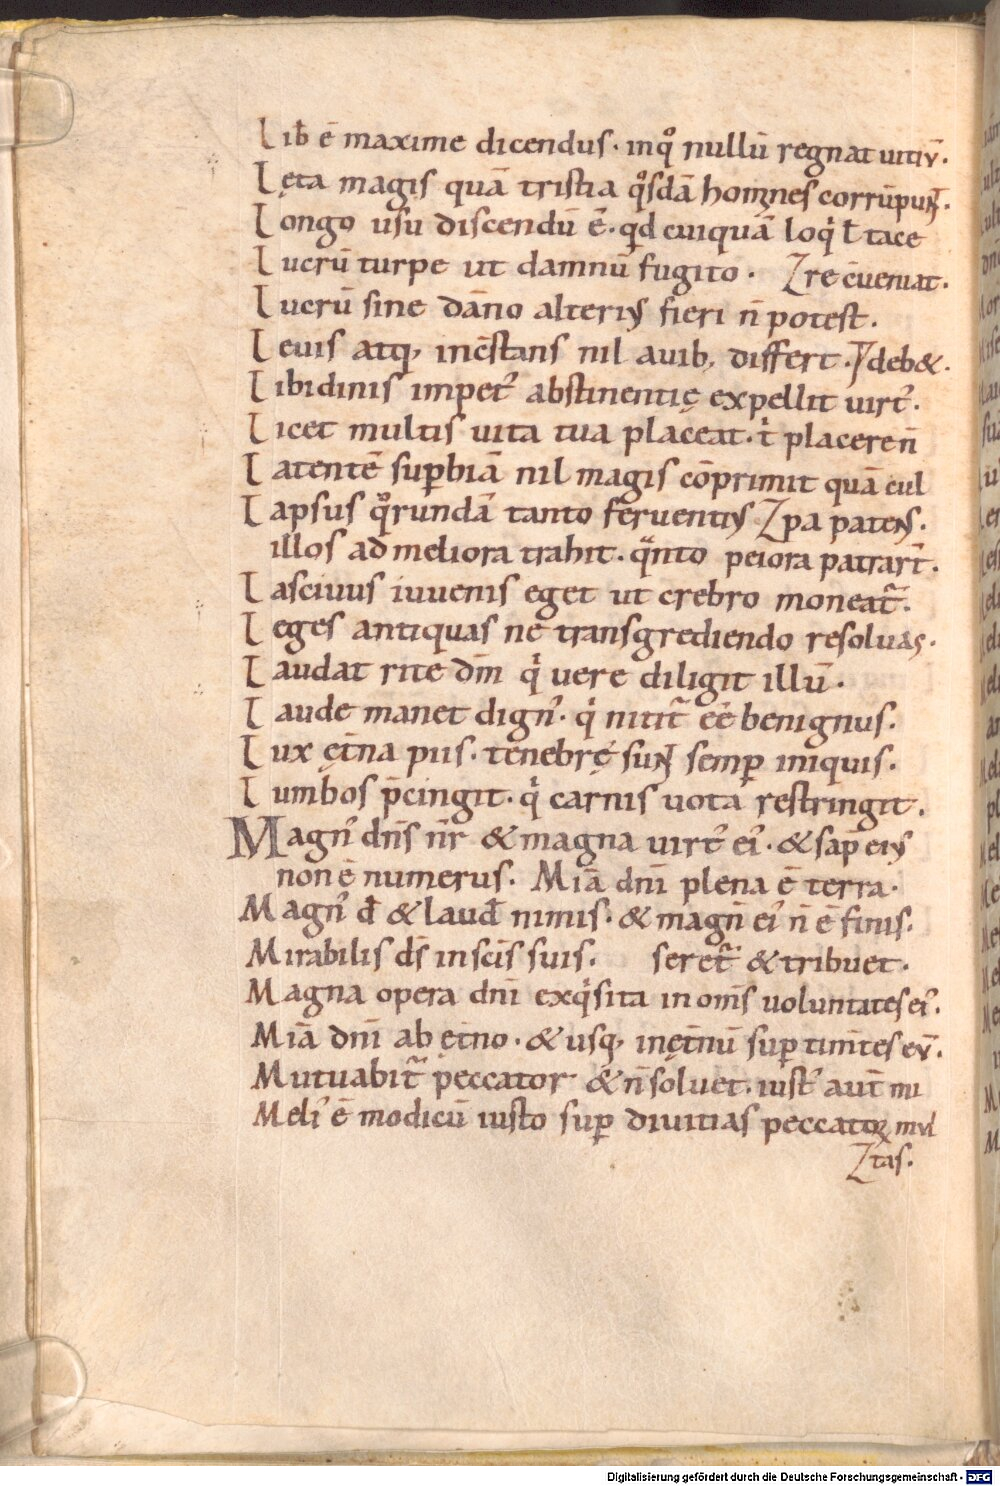 Lib̄ ē maxime dicendus· inqͦ nullū regnat uitiū·
Lęta magis quā tristia qͦsdā homines corrūpunt·
Longo usu discendū ē· qd cuiquā loqͥ ł tace
Lucrū turpe ut damnū fugito· re ēueniat·
Lucrū sine dāno alteriꝰ fieri n̄ potest·
Leuis atq; incōstans nil auib; differt· deb&·
Libidinis impetꝰ abstinentię expellit uirtꝰ·
Licet multis uita tua placeat· tͥ placere n̄
Latentē suꝑbiā nil magis cōprimit quā cul
Lapsus qͦrundā tanto feruentiꝰ pa patens·
illos ad meliora trahit· qͣnto peiora patrart̄·
Lasciuus iuuenis eget ut crebro moneat̄·
Leges antiquas ne transgrediendo resoluas·
Laudat rite dm̄ qͥ uere diligit illū·
Laude manet dignꝰ· qͥ nitit̄ eē benignus·
Lux ęt̄na piis· tenebrę sunt semꝑ iniquis·
Lumbos p̄cingit· qͥ carnis uota restringit·
Magnꝰ dn̄s nr̄ & magna uirtꝰ eiꝰ· & sap̄ eiꝰ
non ē numerus· Mīa dn̄i plena ē terra·
Magnꝰ d̄ & laud̄ nimis· & magn̄ eiꝰ n̄ ē finis·
Mirabilis ds̄ in scīs suis· seret̄ & tribuet·
Magna opera dn̄i exqͥsita in om̄s uoluntates eiꝰ·
Mīa dn̄i ab ęt̄no· & usq; in ęt̄nū suꝑ tim̄tes eū·
Mutuabit̄ peccator & n̄ soluet· iustꝰ aut̄ mi
Meliꝰ ē modicū iusto suꝑ diuitias peccatoꝝ mul
tas·
Digitalisierung gefördert durch die Deutsche Forschungsgemeinschaft - DFG